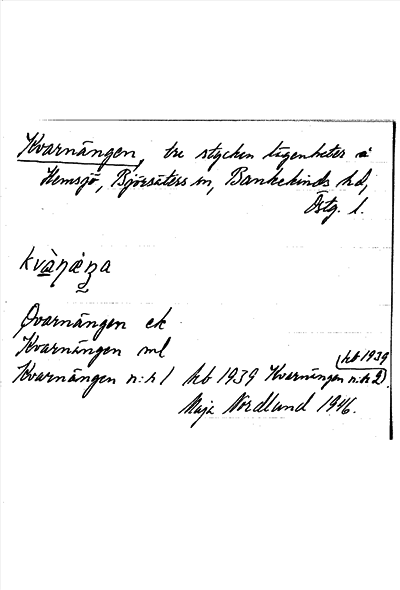 Kvarnängen, tre stycken lägenheter å
Hemsjö, Björsäters sn, Bankekinds hd,
Östg. l.
Qvarnängen ek
Kvarnängen ml
hb 1939
Kvarnängen n:r 1 hb 1939 Kvarnängen n:r 2
Maja Nordlund 1946.